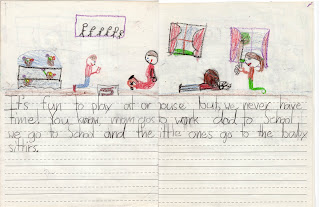 It's fun to play at or ouce but, we never have
time! You know, mom gos to work dad to School
we go to School and the little ones go to the baby
sittirs.